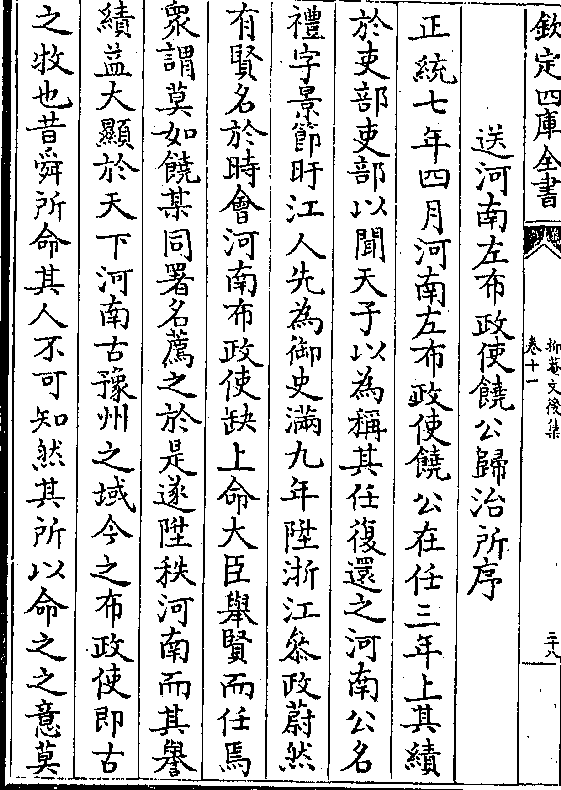 欽定四庫全書
抑菴文後集
卷十一
二十八
送河南左布政使饒公歸治所序
正統七年四月河南左布政使饒公在任三年上其績
於吏部吏部以聞天子以為稱其任復還之河南公名
禮字景節盱江人先為御史滿九年陞浙江叅政蔚然
有賢名於時會河南布政使缺上命大臣舉賢而任焉
衆謂莫如饒某同署名薦之於是遂陞秩河南而其譽
績益大顯於天下河南古豫州之域今之布政使即古
之牧也昔舜所命其人不可知然其所以命之之意莫